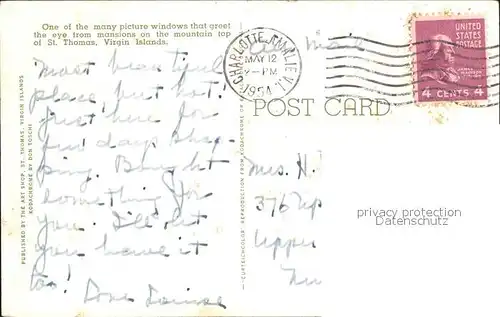 One of the many picture windows that greet
the eye from mansions on the mountain top
of St. Thomas, Virgin Islands.
Air Mail
CHARLOTTE AMALIE, V.I.
MAY 12
2-PM
1954
UNITED
STATES
POSTAGE
JAMES MADISON
4 CENTS 4
POST CARD
Most beautiful
place, but hot!
Just here for
few days shop-
ping. Bought
something for
you. I'll let
you have it
too!
Love Louise
Mrs. H.
376 Up
Upper
privacy protection
Datenschutz
PUBLISHED BY THE ART SHOP, ST. THOMAS, VIRGIN ISLANDS
KODACHROME BY DON TOSCHI
"CURTEICHCOLOR" REPRODUCTION FROM KODACHROME OR